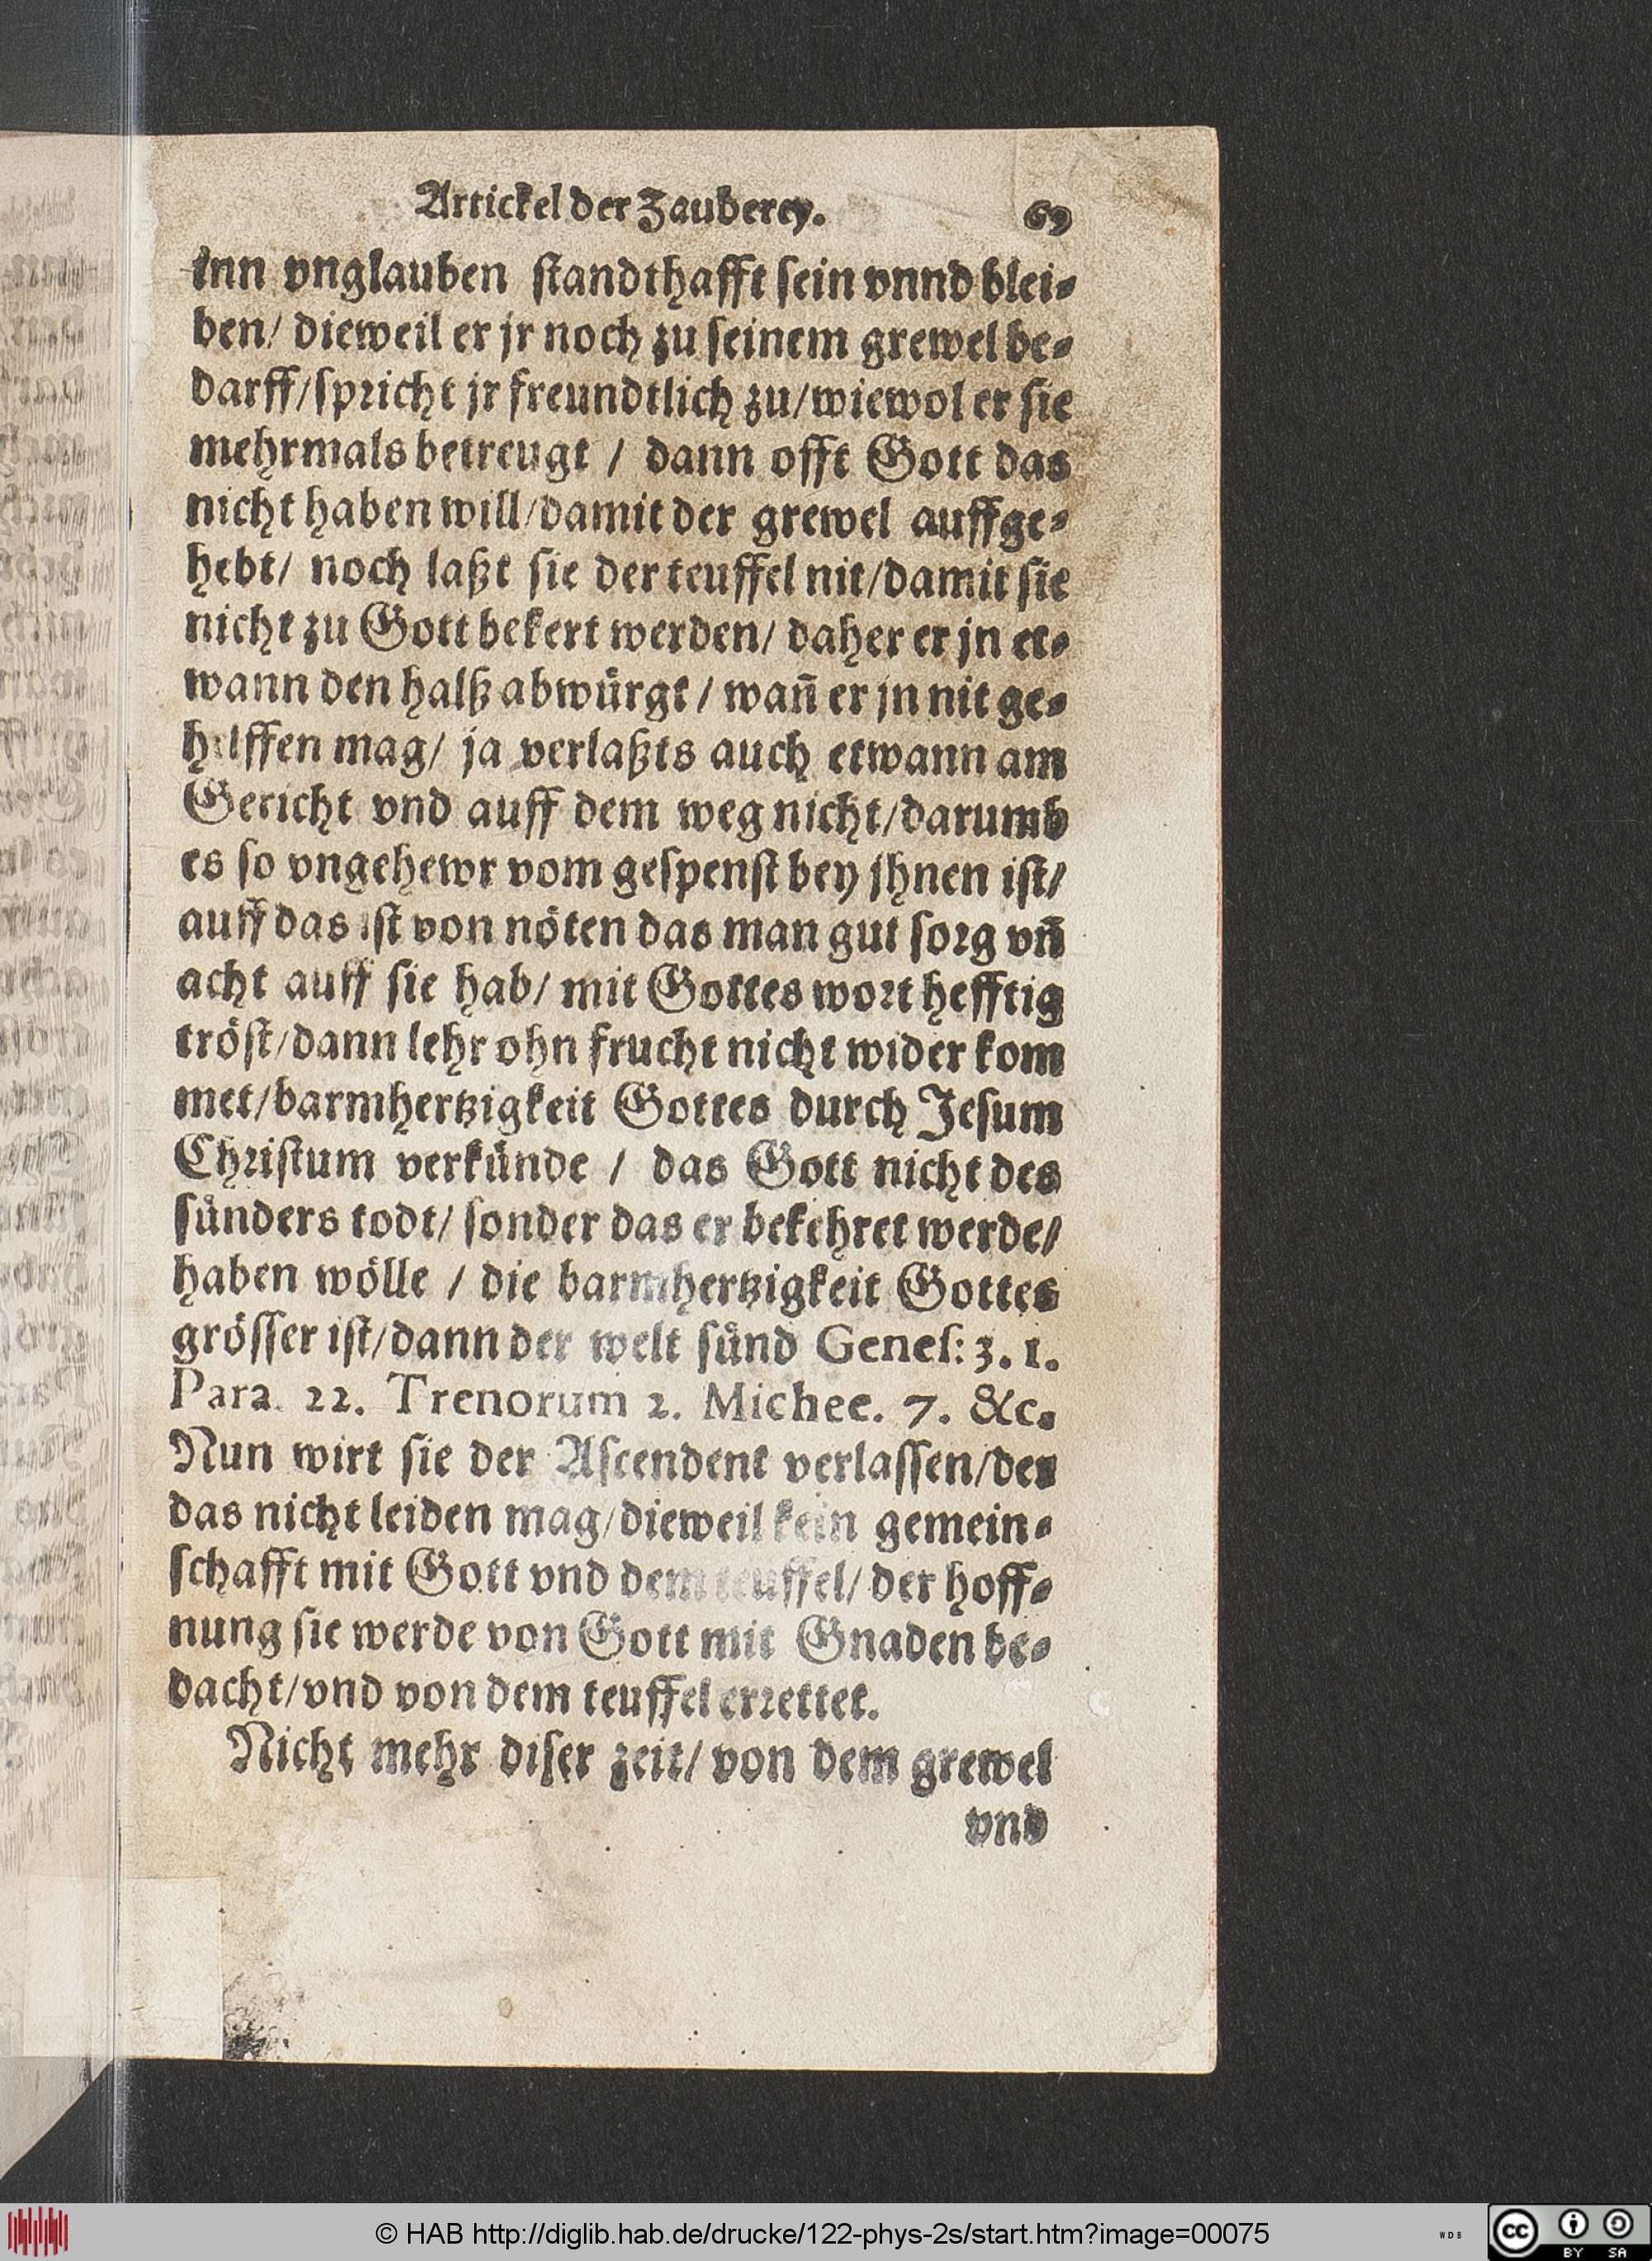 Artickel der Zauberey. 69
inn vnglauben standthafft sein vnnd blei-
ben/ dieweil er jr noch zu seinem grewel be-
darff/spricht jr freundtlich zu/wiewol er sie
mehrmals betreugt / dann offt Gott das
nicht haben will/damit der grewel auffge-
hebt/ noch laßt sie der teuffel nit/damit sie
nicht zu Gott bekert werden/ daher er jn et-
wann den halß abwürgt / wañ er jn nit ge-
helffen mag/ ja verlaßts auch etwann am
Gericht vnd auff dem weg nicht/darumb
es so vngehewr vom gespenst bey jhnen ist/
auff das ist von nöten das man gut sorg vñ
acht auff sie hab/ mit Gottes wort hefftig
tröst/dann lehr ohn frucht nicht wider kom
met/barmhertzigkeit Gottes durch Jesum
Christum verkünde / das Gott nicht des
sünders todt/ sonder das er bekehret werde/
haben wölle / die barmhertzigkeit Gottes
grösser ist/dann der welt sünd Genes: 3. 1.
Para. 22. Trenorum 2. Michee. 7. &c.
Nun wirt sie der Ascendent verlassen/der
das nicht leiden mag/dieweil kein gemein-
schafft mit Gott vnd dem teuffel/ der hoff-
nung sie werde von Gott mit Gnaden be-
dacht/vnd von dem teuffel errettet.
Nicht mehr diser zeit/ von dem grewel
vnd
© HAB http://diglib.hab.de/drucke/122-phys-2s/start.htm?image=00075
WDB
cc BY SA